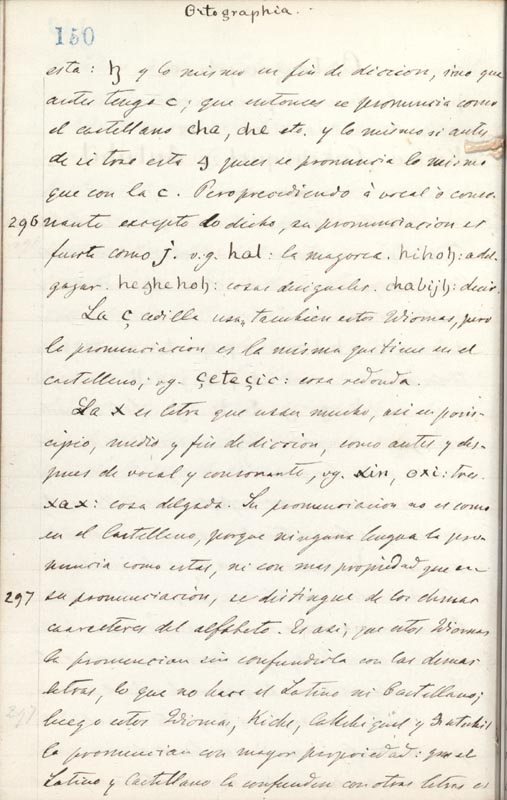 Ortographia.
150
esta: ꜧ y lo mismo en fin de diccion, sino que
antes tenga c; que entonces se pronuncia como
el castellano cha, che etc. y lo mismo si antes
de si trae esta ꜫ pues se pronuncia lo mismo
que con la c. Pero precediendo á vocal ó conso-
296 nante excepto lo dicho, su pronunciacion es
fuerte como j. v.g. hal: la mazorca. hihoꜧ: adel-
gazar. heꜫhehoꜧ: cosas desiguales. chabijꜧ: decir.
La ç cedilla usan tambien estos Idiomas, pero
la pronunciacion es la misma que tiene en el
castellano; vg. çeteçic: cosa redonda.
La x es letra que usan mucho, asi en prin-
cipio, medio y fin de diccion, como antes y des-
pues de vocal y consonante, vg. xin, oxi: tres.
xax: cosa delgada. Su pronunciacion no es como
en el Castellano, porque ninguna lengua la pro-
nuncia como estas, ni con mas propiedad que en
297 su pronunciacion, se distingue de los demas
caracteres del alfabeto. Es asi, que estos Idiomas
la pronuncian sin confundirla con las demas
letras, lo que no hace el Latino ni Castellano;
297 luego estos Idiomas, Kiche, Cakchiquel y Zutuhil
la pronuncian con mayor propiedad: que el
Latino y Castellano la confunden con otras letras es